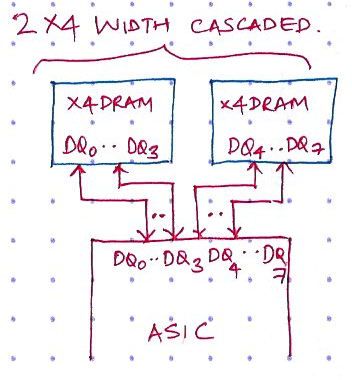 2 X4 WIDTH CASCADED.
X4 DRAM
X4 DRAM
DQ0 ·· DQ3
DQ4 ·· DQ7
·· ··
DQ0 ·· DQ3 DQ4 ·· DQ7
ASIC